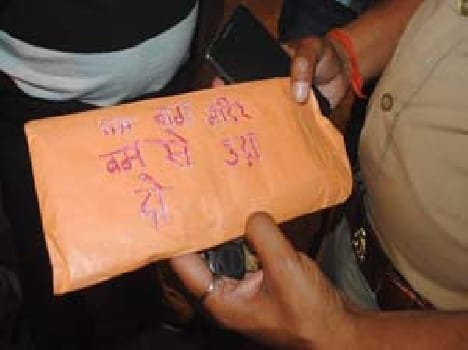 मंदिर
बम से उड़ा
दो